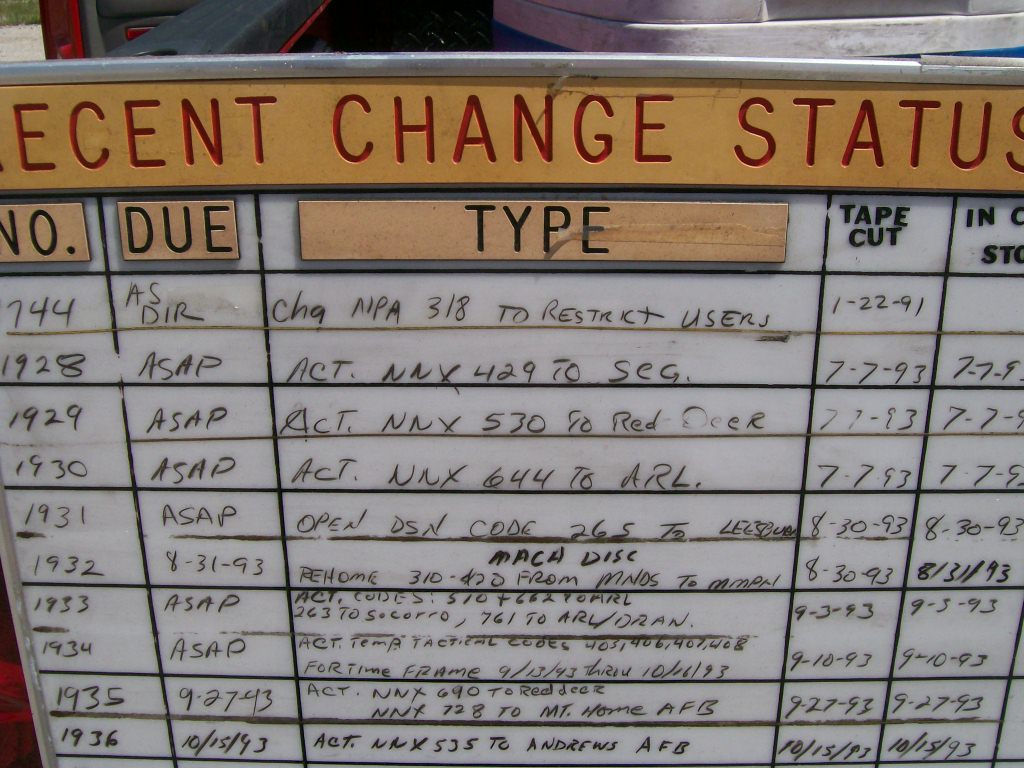 RECENT CHANGE STATUS
NO. DUE TYPE TAPE CUT IN
1744 AS DIR Chg NPA 318 TO RESTRICT USERS 1-22-91
1928 ASAP ACT. NNX 429 TO SEG. 7-7-93 7-7-9
1929 ASAP ACT. NNX 530 TO Red Deer 7 7-93 7-7-9
1930 ASAP ACT. NNX 644 TO ARL. 7-7-93 7-7-9
1931 ASAP OPEN DSN CODE 265 TO 8-30-93 8-30-93
MACH DISC
1932 8-31-93 REHOME 310-420 FROM MNDS TO 8-30-93 8/31/93
ACT. CODES: 510 + 662 TO ARL
1933 ASAP 263 TO SOCORRO, 761 TO ARL/DRAN. 9-3-93 9-3-93
ACT. TEMP. TACTICAL CODES 405, 406, 407, 408
1934 ASAP FOR TIME FRAME 9/13/93 THROU 10/16/93 9-10-93 9-10-93
ACT. NNX 690 TO Red deer
1935 9-27-93 NNX 728 TO MT. HOME AFB 9-27-93 9-27-93
1936 10/15/93 ACT. NNX 535 TO ANDREWS AFB 10/15/93 10/15/93